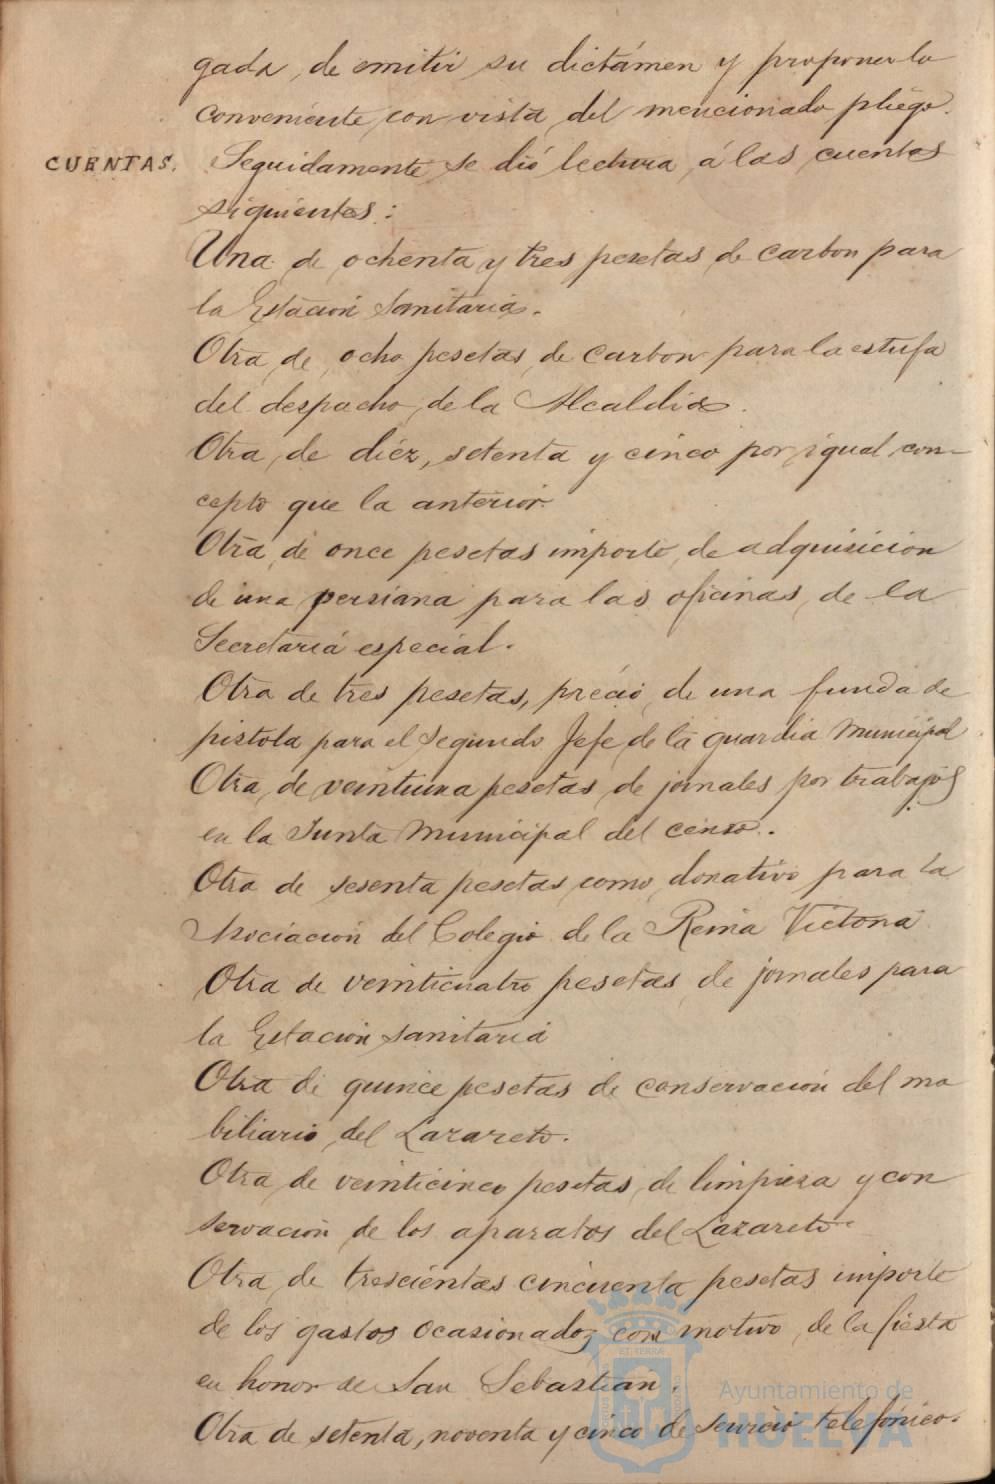 gada, de emitir su dictámen y proponer lo
conveniente con vista del mencionado pliego.
CUENTAS. Seguidamente se dió lectura á las cuentas
siguientes:
Una de ochenta y tres pesetas de carbon para
la Estación Sanitaria.
Otra de ocho pesetas de carbon para la estufa
del despacho de la Alcaldia.
Otra de diéz, setenta y cinco por igual con-
cepto que la anterior.
Otra de once pesetas importe de adquisicion
de una persiana para las oficinas de la
Secretaría especial.
Otra de tres pesetas, precio de una funda de
pistola para el Segundo Jefe de la guardia Municipal
Otra de veintiuna pesetas de jornales por trabajos
en la Junta Municipal del censo.
Otra de sesenta pesetas como donativo para la
Asociación del Colegio de la Reina Victoria
Otra de veinticuatro pesetas de jornales para
la Estación sanitaria
Otra de quince pesetas de conservación del mo
biliario del Lazareto.
Otra de veinticinco pesetas de limpieza y con
servación de los aparatos del Lazareto.
Otra de trescientas cincuenta pesetas importe
de los gastos ocasionados con motivo de la fiesta
en honor de San Sebastián.
Otra de setenta, noventa y cinco de servicio telefónico.
Ayuntamiento de
HUELVA